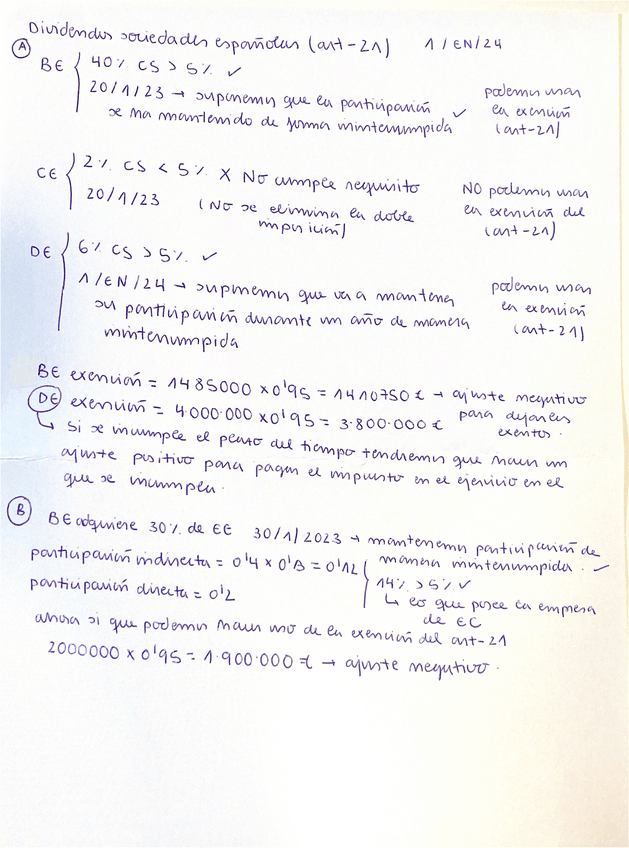 Dividendos sociedades españolas (art-21) 1/EN/24
A
BE { 40% CS > 5% ✓
20/1/23 → suponemos que la participación ✓
se ha mantenido de forma ininterrumpida
podemos usar
la exención
(art-21)
CE { 2% CS < 5% X No cumple requisito
20/1/23 (No se elimina la doble
imposición)
NO podemos usar
la exención del
(art-21)
DE { 6% CS > 5% ✓
1/EN/24 → suponemos que va a mantener
su participación durante un año de manera
ininterrumpida
podemos usar
la exención
(art-21)
BE exención = 1485000 x 0'95 = 1410750 € → ajuste negativo
DE exención = 4.000.000 x 0'95 = 3.800.000 € para dejarlos
exentos.
↳ Si se incumple el plazo del tiempo tendremos que hacer un
ajuste positivo para pagar el impuesto en el ejercicio en el
que se incumpla.
B
BE adquiere 30% de EE 30/1/2023 → mantenemos participación de
manera ininterrumpida. ✓
participación indirecta = 0'4 x 0'3 = 0'12 { 14% > 5% ✓
participación directa = 0'2 ↳ lo que posee la empresa
de EC
ahora si que podemos hacer uso de la exención del art-21
2000000 x 0'95 = 1.900.000 € → ajuste negativo.